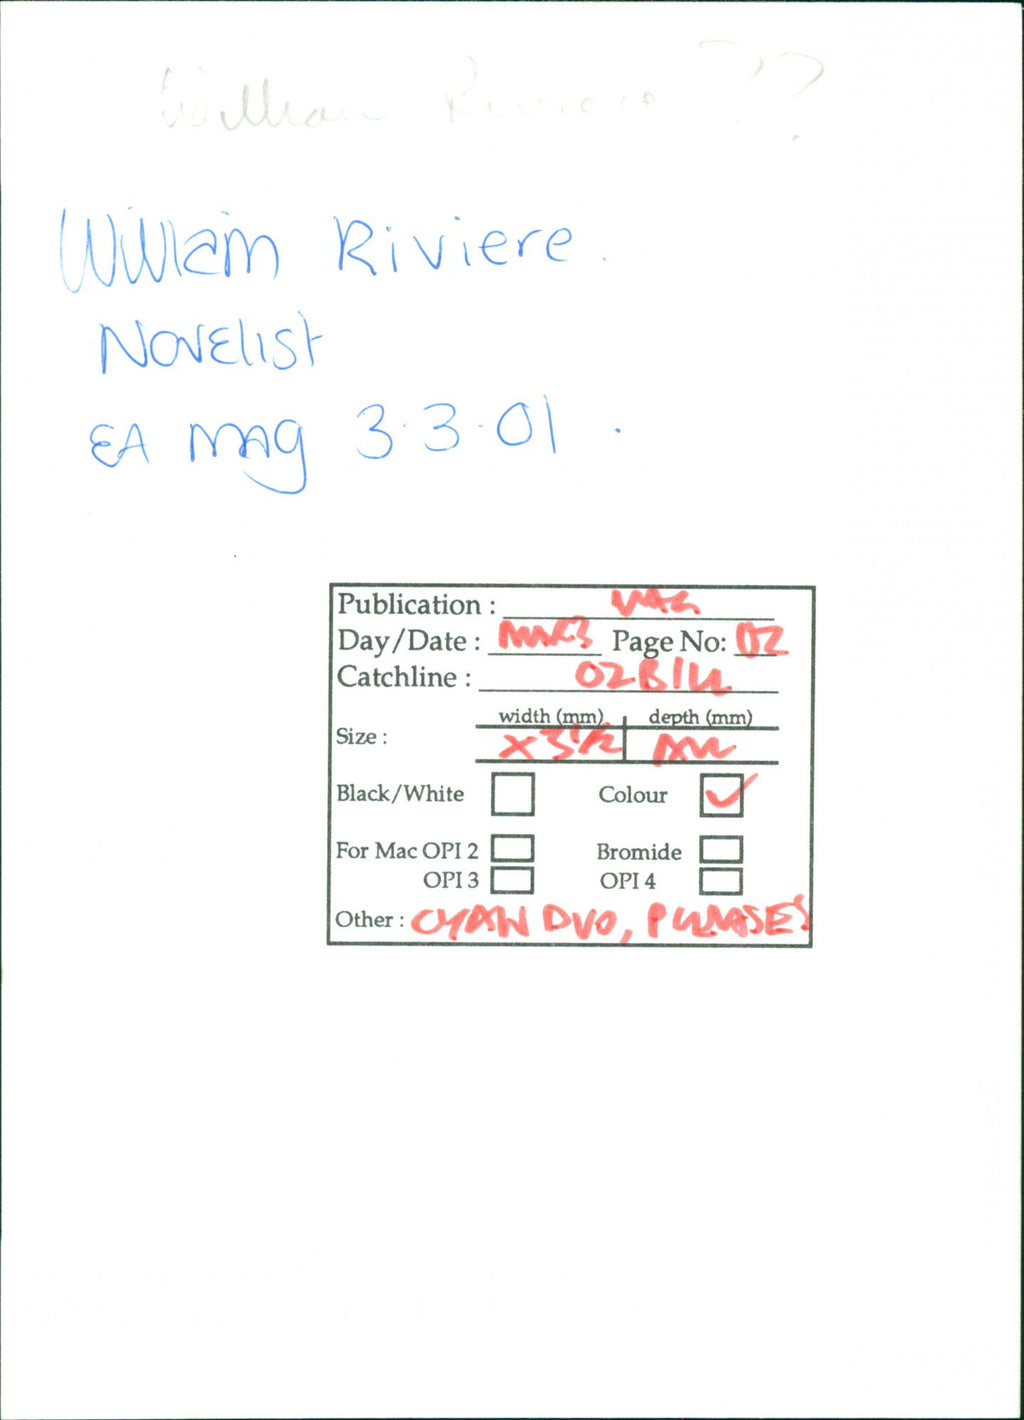 William Riviere ??
William Riviere.
Novelist
EA MAG 3.3.01.
Publication : MAG
Day/Date : MAR3 Page No: 02
Catchline :
width (mm) depth (mm)
Size : X 3 1/2
Black/White Colour ✓
For Mac OPI 2 Bromide
OPI 3 OPI 4
Other : CYAN DUO, PLEASE!